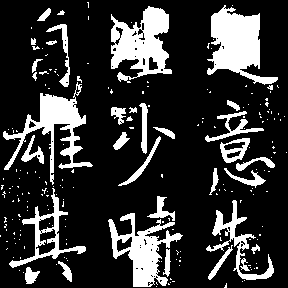 意先
少時
自雄其